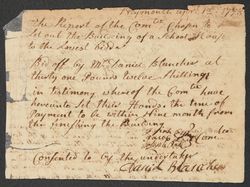 Weymouth April
The Report of the Comtte Chosen to
Set out the Building of a School House
to the Lowest Bidder
Bid off by Mr Daniel Blancher at
thirty one Pounds twelve Shillings
in testimony whereof the Comtte have
hereunto Set their Hands the time of
Payment to be within Nine month
from the finishing the Building
Consented to by the undertaker
Daniel Blancher